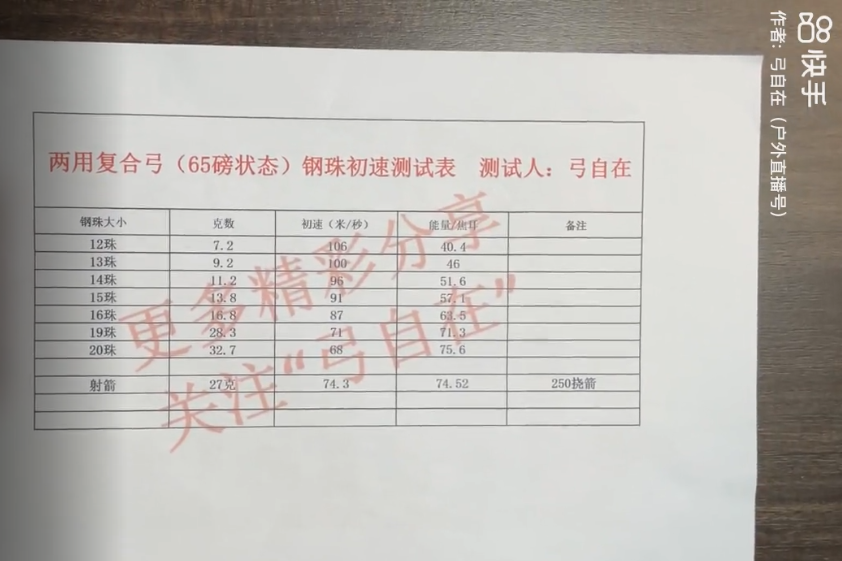 两用复合弓（65磅状态）钢珠初速测试表 测试人：弓自在
钢珠大小 克数 初速（米/秒） 能量/焦耳 备注
12珠 7.2 106 40.4
13珠 9.2 100 46
14珠 11.2 96 51.6
15珠 13.8 91 57.1
16珠 16.8 87 63.5
19珠 28.3 71 71.3
20珠 32.7 68 75.6
射箭 27克 74.3 74.52 250挠箭
更多精彩分享
关注“弓自在”
快手
作者：弓自在（户外直播号）